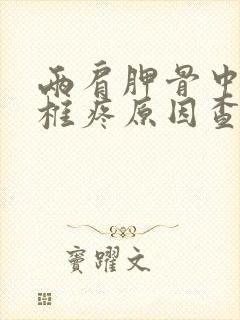 两肩胛骨中
柱疼原因查
窦躍文